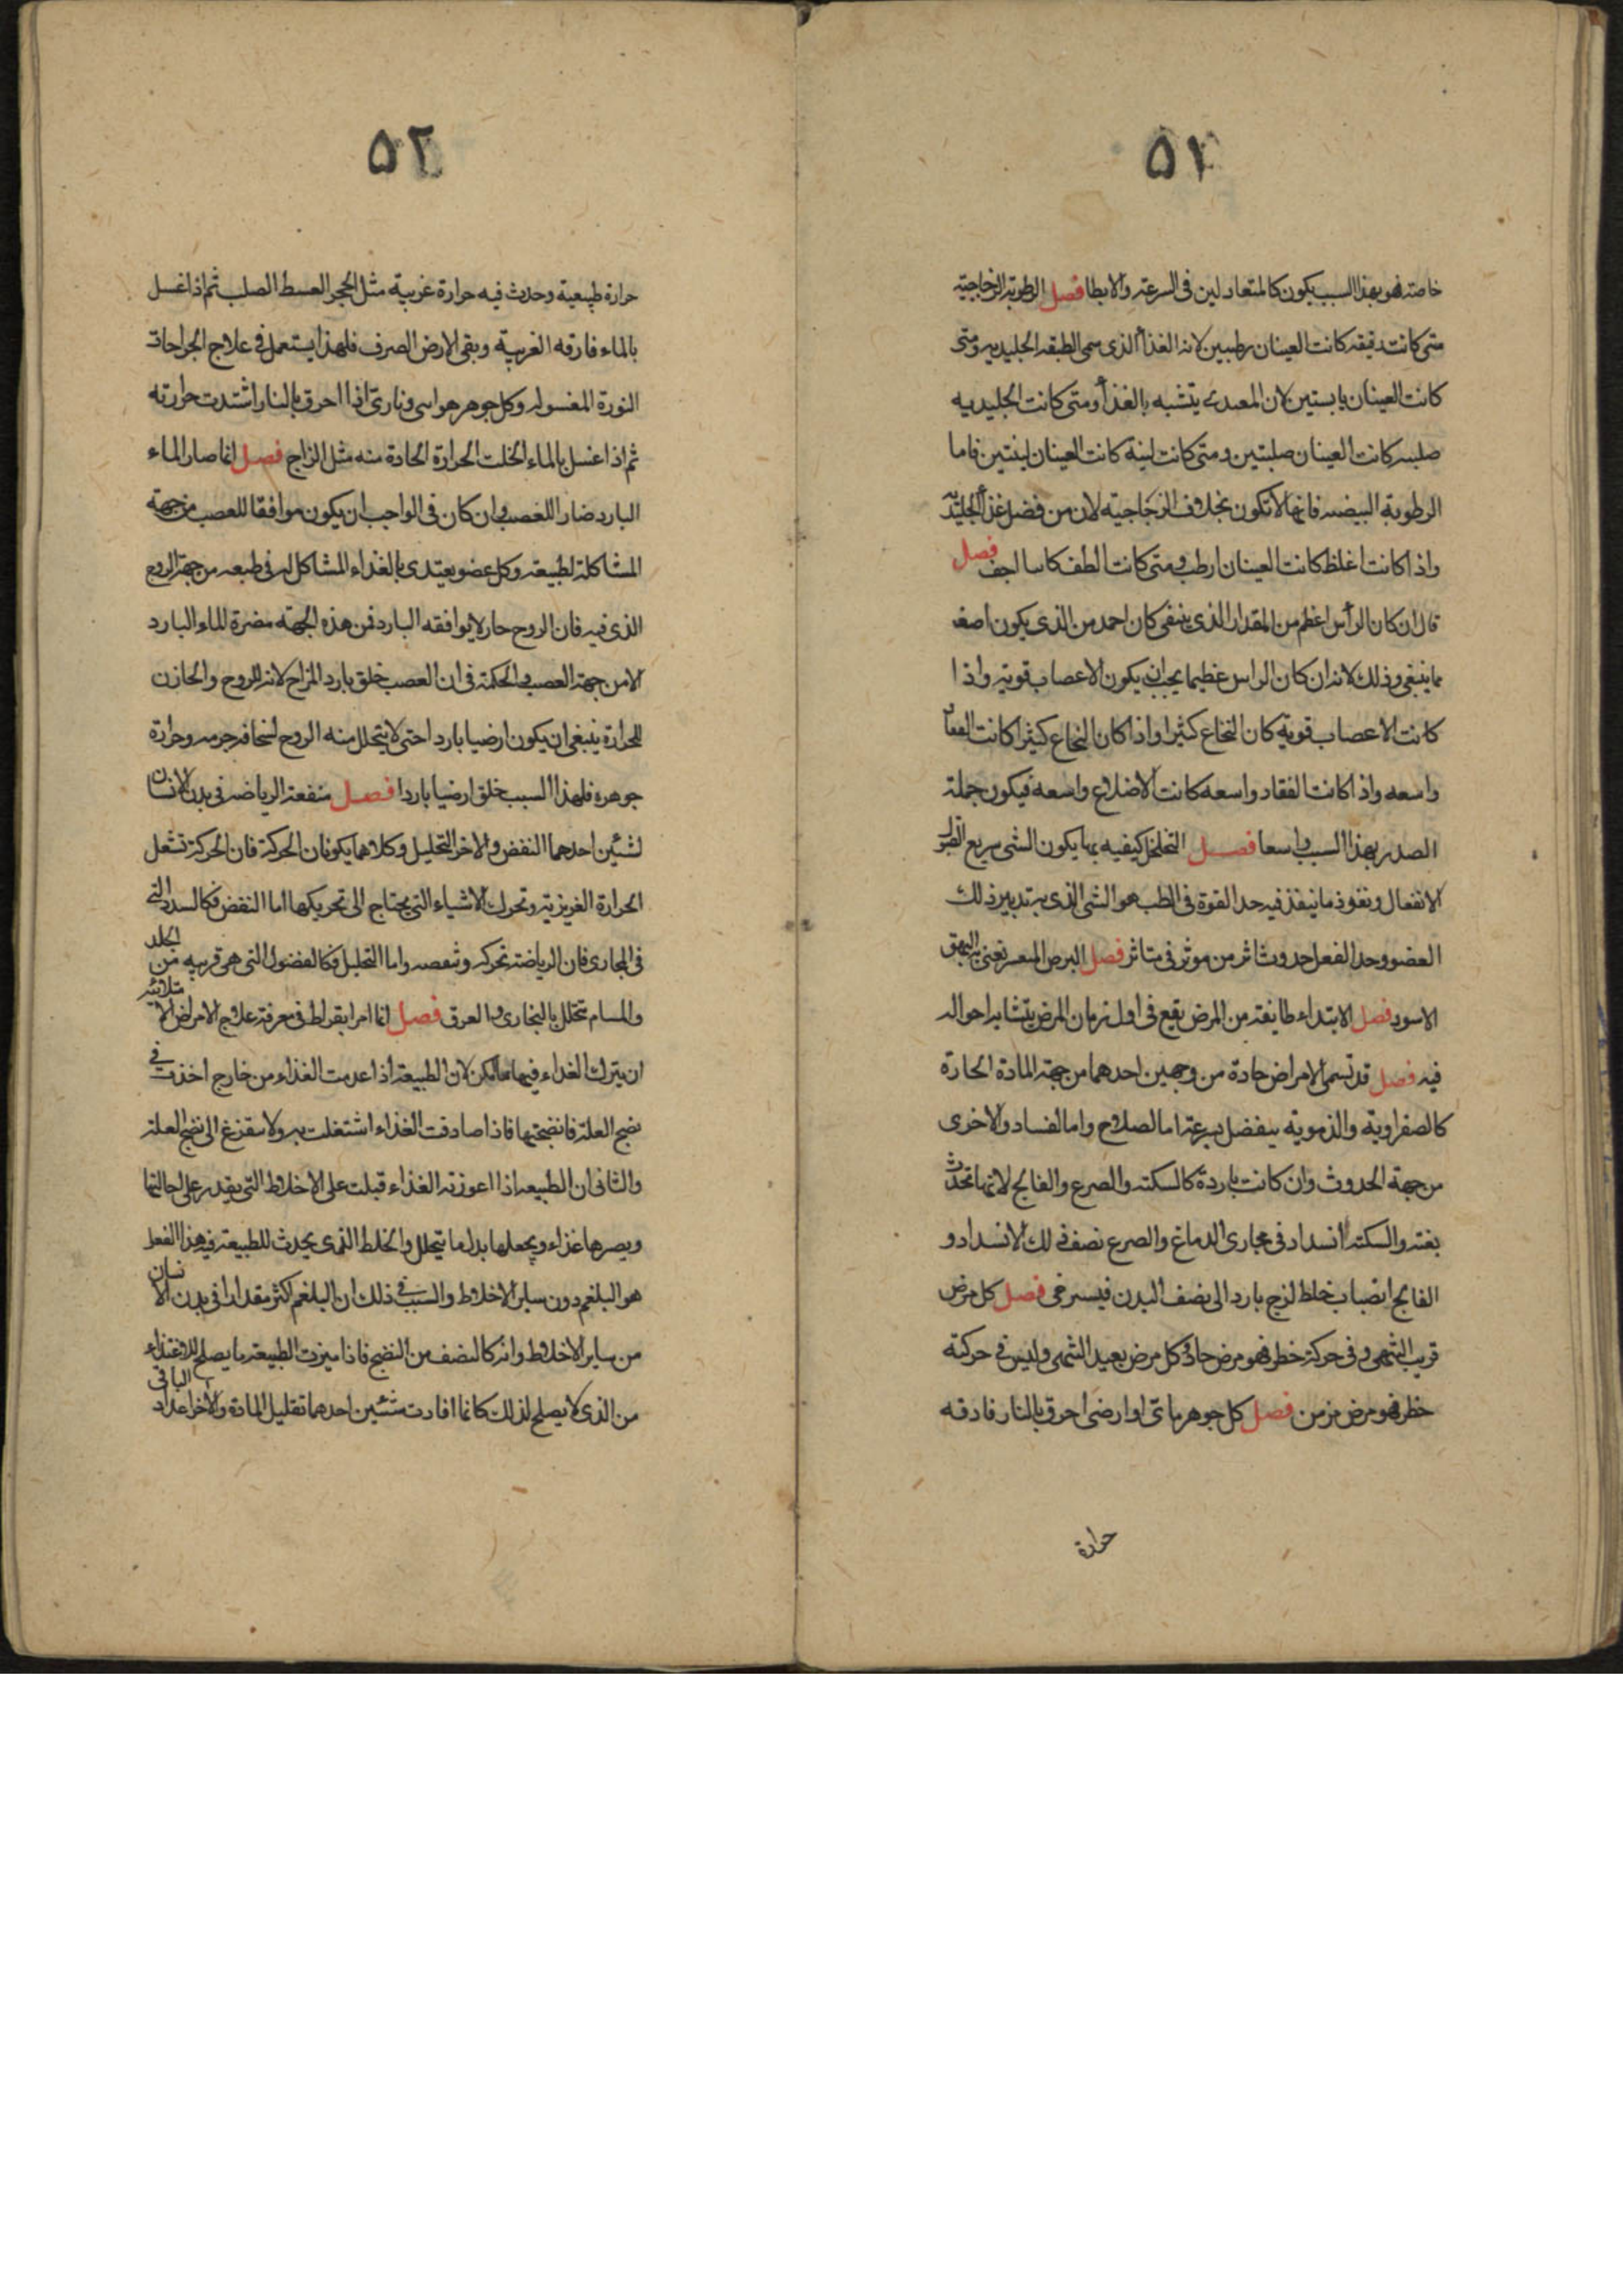 ٥١
خاصته فهو بهذا السبب يكون كالمتعادلين فى السرعة والابطا فصل الرطوبة الزجاجية
متى كانت رقيقه كانت العينان رطبين لانه الغذا الذى سمى الطبقه الجليديه ومتى
كانت العينان يابستين لان المعتدى يتشبه بالغذا ومتى كانت الجليديه
صلبه كانت العينان صلبتين ومتى كانت لينة كانت العينان لينتين فاما
الرطوبة البيضه فانها لا تكون بخلاف الزجاجية لان من فضل غذا الجليديه
واذا كانت اغلظ كانت العينان ارطب ومتى كانت الطف كاسا اجف فصل
قال ان كان الرأس اعظم من المقدار الذى ينبغى كان احمد من الذى يكون اصغر
مما ينبغى وذلك لانه ان كان الراس عظيما يجب ان يكون الاعصاب قوية واذا
كانت الاعصاب قوية كان النخاع كثيرا واذا كان النخاع كثيرا كانت الفقار
واسعه واذا كانت الفقار واسعه كانت الاضلاع واسعه فيكون جملة
الصدر بهذا السبب واسعا فصل التخلخل كيفيه بها يكون الشى سريع القبول
الانفعال ونفوذ ما ينفذ فيه حد القوة فى الطب هو الشى الذى به تدبير ذلك
العضو وحد الفعل حدوث اثر من موثر فى متاثر فصل البرص المتعسر نعنى البهق
الاسود فصل الابتداء طايفة من المرض يقع فى اول زمان المرض يتشابه احواله
فيه فصل قد تسمى الامراض حادة من وجهين احدهما من جهة المادة الحارة
كالصفراوية والدموية ينفصل بسرعة اما لصلاح واما لفساد والاخرى
من جهة الحدوث وان كانت باردة كالسكته والصرع والفالج لانها تحدث
بغته والسكته انسداد فى مجارى الدماغ والصرع نصف ذلك الانسداد و
الفالج انصباب خلط لزج بارد الى نصف البدن فيسترخى فصل كل مرض
قريب المنتهى وفى حركته خطر فهو مرض حاد وكل مرض بعيد المنتهى وليس فى حركته
خطر فهو مرض مزمن فصل كل جوهر مائى او ارضى احرق بالنار فارقه
حرارة
٥٢
حرارة طبيعية وحدث فيه حرارة غريبة مثل الحجر الصلب ثم اذا غسل
بالماء فارقه الغريبة وبقى الارض الصرف فلهذا يستعمل فى علاج الجراحات
النورة المغسوله وكل جوهر هوائى ونارى اذا احرق بالنار اشتدت حرارته
ثم اذا غسل بالماء انحلت الحرارة الحادة منه مثل الزاج فصل انما صار الماء
البارد ضار اللعصب وان كان فى الواجب ان يكون موافقا للعصب من جهة
المشاكلة لطبيعته وكل عضو يغتدى بالغذاء المشاكل له فى طبعه من جهة الروح
الذى فيه فان الروح حار لا يوافقه البارد فمن هذه الجهة مضرة للماء البارد
لا من جهة العصب والحكمة فى ان العصب خلق بارد المزاج لانه للروح والخازن
للحرارة ينبغى ان يكون ارضيا باردا حتى لا يتحلل منه الروح لسخافة جرمه وحرارة
جوهره فلهذا السبب خلق ارضيا باردا فصل منفعة الرياضه فى بدن الانسان
لشيئين احدهما النفض والاخر التحليل وكلاهما يكونان الحركة فان الحركة تشعل
الحرارة الغريزية وتحرك الاشياء التى يحتاج الى تحريكها اما النفض فكالسدد التى
فى المجارى فان الرياضة تحركه وتنفضه واما التحليل فكالفضول التى هى قريبه من الجلد
والمسام تتحلل بالبخارى والعرق فصل انما امر ابقراط فى معرفة علاج الامراض
ان يترك الغذاء فيها ما امكن لان الطبيعة اذا عدمت الغذاء من خارج اخذت فى
نضج العلة فانضجتها فاذا صادفت الغذاء اشتغلت به ولا يتفرغ الى نضج العلة
والثانى ان الطبيعه اذا اعوزته الغذاء قبلت على الاخلاط التى يقدر على احالتها
ويصيرها غذاء ويجعلها بدل ما يتحلل والخلط الذى يحدث للطبيعة فيه هذا الفعل
هو البلغم دون ساير الاخلاط والسبب فى ذلك ان البلغم اكثر مقدارا فى بدن الانسان
من ساير الاخلاط وانه كالنصف من النضج فاذا ميزت الطبيعة ما يصلح للاغتذاء
من الذى لا يصلح لذلك كانما افادت شيئين احدهما تقليل المادة والاخر اعداد الباقى